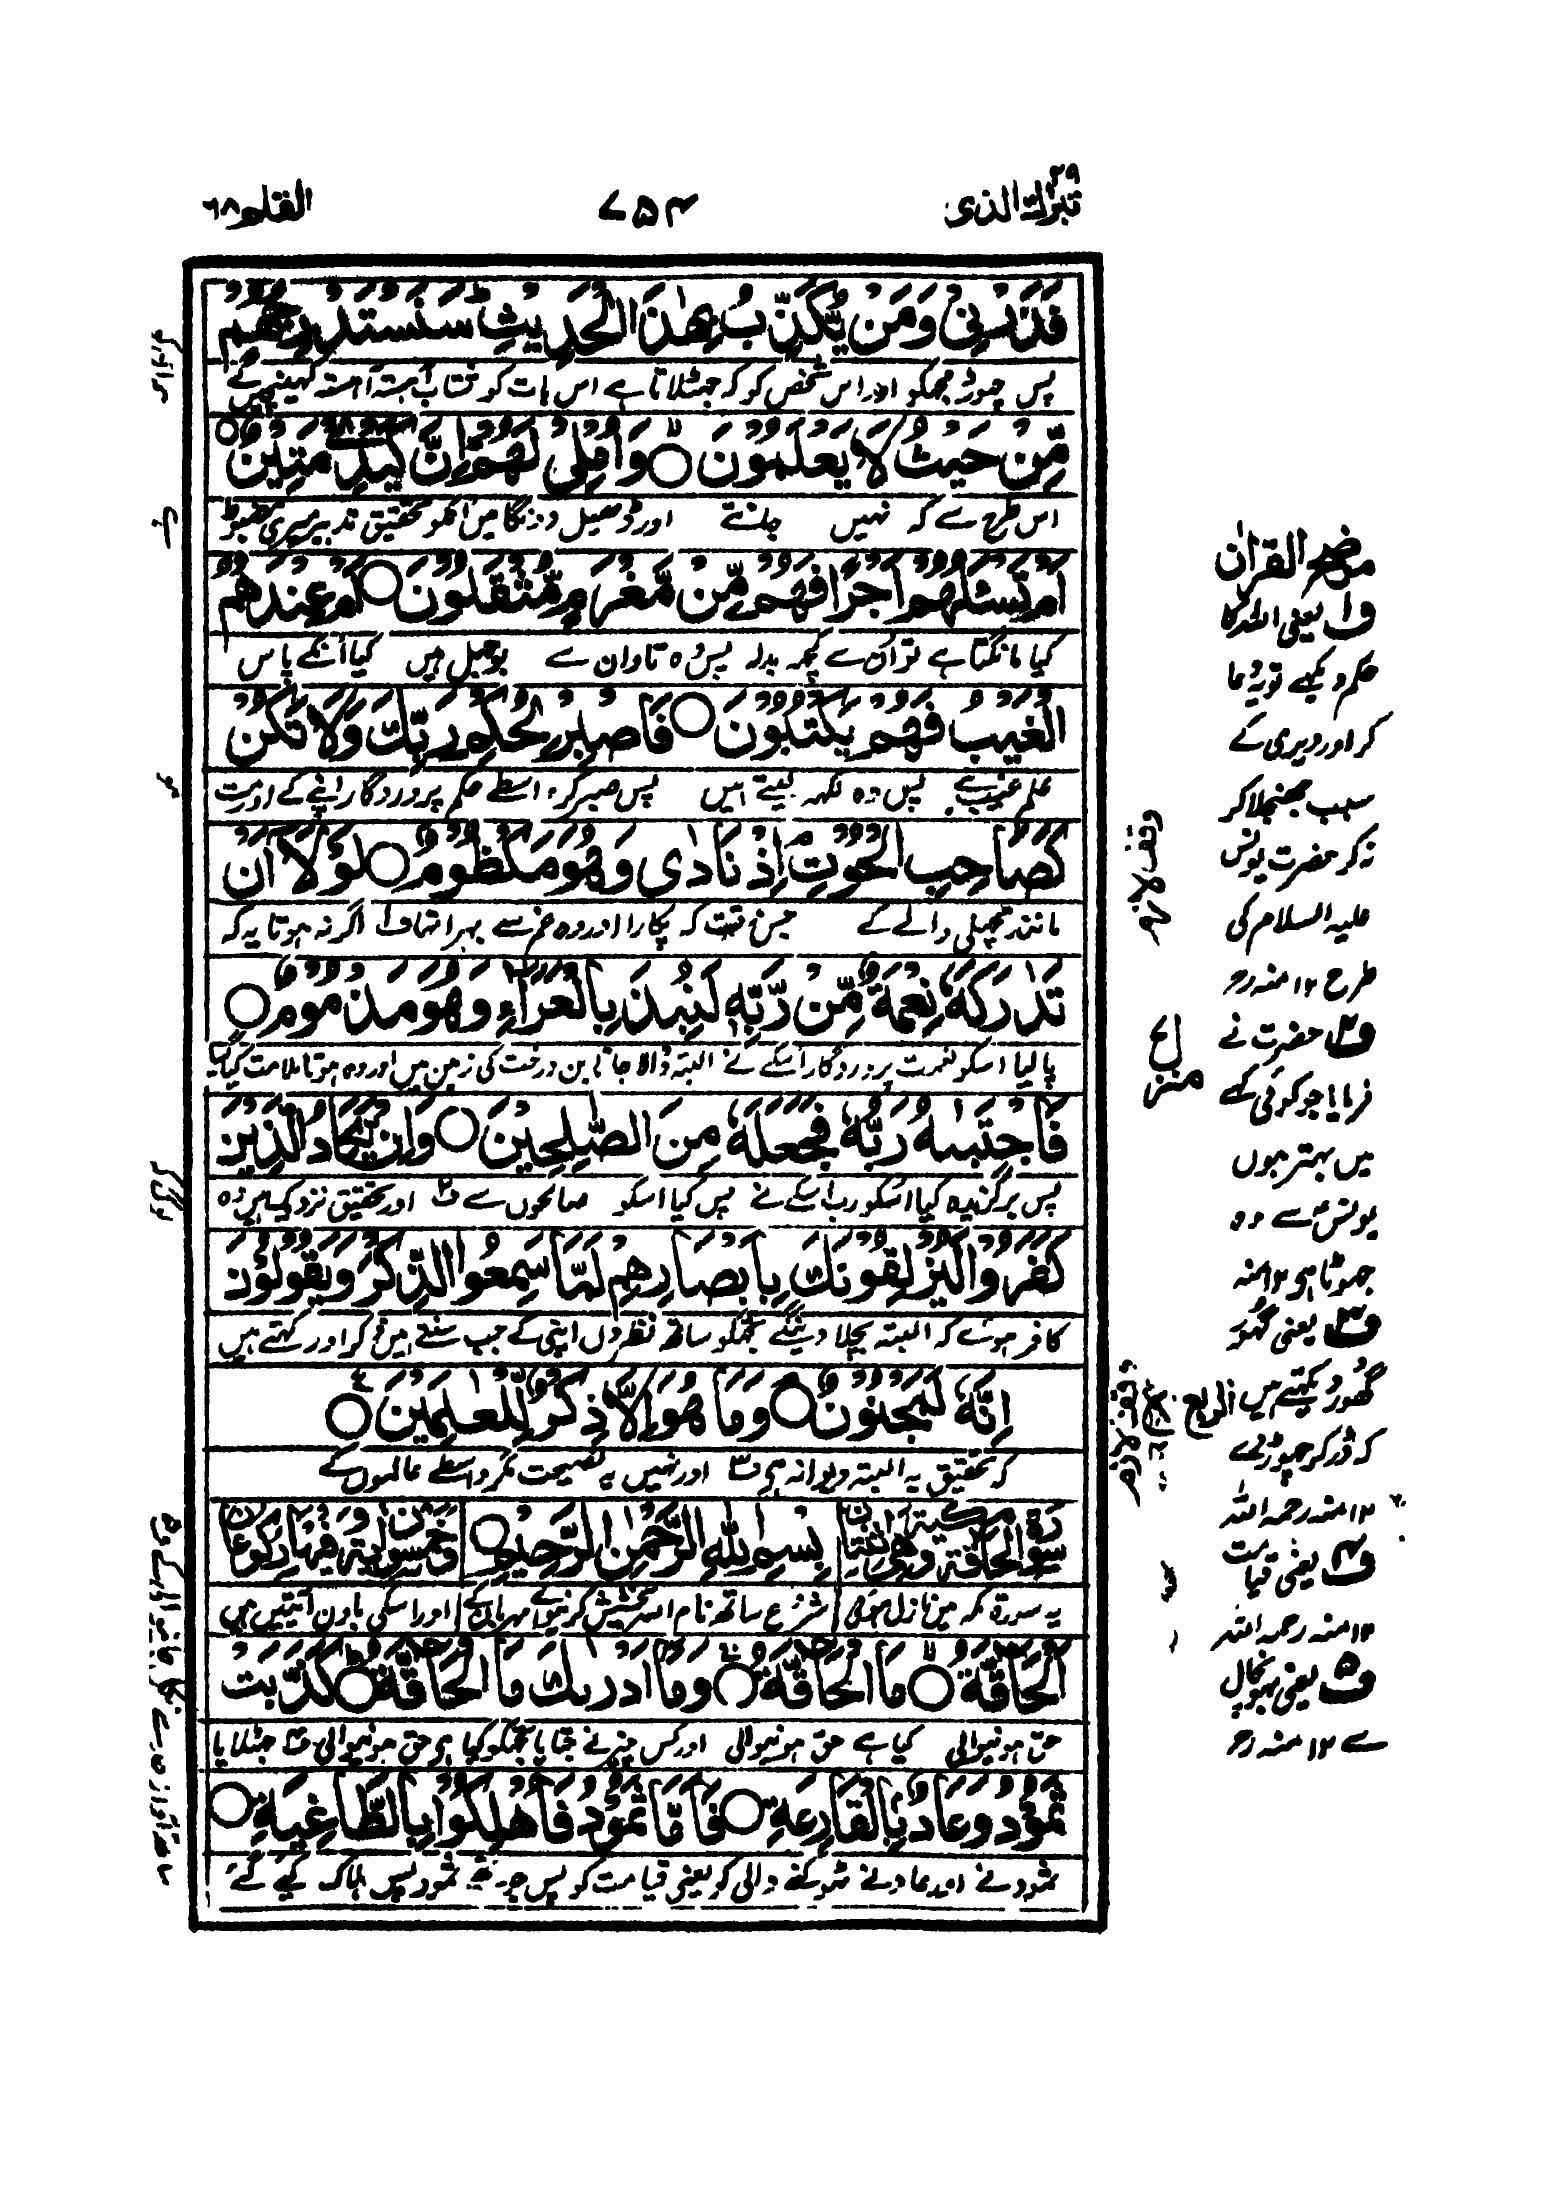 تبٰرك الذى ٢٩
۷۵۴
القلم ٦٨
فَذَرْنِىْ وَمَنْ يُّكَذِّبُ بِهٰذَا الْحَدِيْثِ ؕ سَنَسْتَدْرِجُهُمْ
پس چھوڑ مجھکو اور اس شخص کو کہ جھٹلاتا ہے اس بات کو شتاب آہستہ آہستہ کھینچینگے
مِّنْ حَيْثُ لَا يَعْلَمُوْنَ ۙ وَاُمْلِىْ لَهُمْ ؕ اِنَّ كَيْدِىْ مَتِيْنٌ
اس طرح سے کہ نہیں جانتے اور ڈھیل دونگا میں انکو تحقیق تدبیر میری مضبوط
اَمْ تَسْئَلُهُمْ اَجْرًا فَهُمْ مِّنْ مَّغْرَمٍ مُّثْقَلُوْنَ ۚ اَمْ عِنْدَهُمُ
کیا مانگتا ہے تو ان سے کچھ بدلہ پس وہ تاوان سے بوجھل ہیں کیا انکے پاس
الْغَيْبُ فَهُمْ يَكْتُبُوْنَ فَاصْبِرْ لِحُكْمِ رَبِّكَ وَلَا تَكُنْ
علم غیب ہے پس وہ لکھ لیتے ہیں پس صبر کر واسطے حکم پروردگار اپنے کے اور مت
كَصَاحِبِ الْحُوْتِ ۘ اِذْ نَادٰى وَهُوَ مَكْظُوْمٌ ؕ لَوْلَا اَنْ
مانند مچھلی والے کے جس وقت کہ پکارا اور وہ غم سے بھرا تھا ف۱ اگر نہ ہوتا یہ کہ
تَدٰرَكَهٗ نِعْمَةٌ مِّنْ رَّبِّهٖ لَنُبِذَ بِالْعَرَآءِ وَهُوَ مَذْمُوْمٌ
پا لیا اسکو نعمت پروردگار اسکے نے البتہ ڈالا جاتا بن درخت کی زمین میں اور وہ ہوتا ملامت کیا گیا
فَاجْتَبٰىهُ رَبُّهٗ فَجَعَلَهٗ مِنَ الصّٰلِحِيْنَ وَاِنْ يَّكَادُ الَّذِيْنَ
پس برگزیدہ کیا اسکو رب اسکے نے پس کیا اسکو صالحوں سے ف۲ اور تحقیق نزدیک ہیں وہ
كَفَرُوْا لَيُزْلِقُوْنَكَ بِاَبْصَارِهِمْ لَمَّا سَمِعُوا الذِّكْرَ وَيَقُوْلُوْنَ
کافر ہوئے کہ البتہ پھسلا دینگے تجھکو ساتھ نظروں اپنی کے جب سنتے ہیں ذکر اور کہتے ہیں
اِنَّهٗ لَمَجْنُوْنٌ ۘ وَمَا هُوَ اِلَّا ذِكْرٌ لِّلْعٰلَمِيْنَ
کہ تحقیق یہ البتہ دیوانہ ہی ف۳ اور نہیں یہ نصیحت مگر واسطے عالموں کے
سورة الحاقة مكية وهى اثنتان بِسْمِ اللّٰهِ الرَّحْمٰنِ الرَّحِيْمِ وخمسون اية وفيها ركوعان
یہ سورۃ مکہ میں نازل ہوئی شروع ساتھ نام اللہ بخشش کرنیوالے مہربان کے اور اسکی باون آیتیں ہیں
اَلْحَآقَّةُ ۙ مَا الْحَآقَّةُ ۚ وَمَا اَدْرٰىكَ مَا الْحَآقَّةُ ؕ كَذَّبَتْ
حق ہونیوالی کیا ہے حق ہونیوالی اور کس چیز نے جتایا تجھکو کیا ہی حق ہونیوالی ف۴ جھٹلایا
ثَمُوْدُ وَعَادٌ بِالْقَارِعَةِ فَاَمَّا ثَمُوْدُ فَاُهْلِكُوْا بِالطَّاغِيَةِ
ثمود نے اور عاد نے ٹھوکنے والی کو یعنی قیامت کو پس جو تھے ثمود پس ہلاک کیے گئے
موضح القرآن
ف۱ یعنی اللہ کا
حکم دیکھے تو بد دعا
کر اور دیری کے
سبب جھنجلا کر
نہ کر حضرت یونس
علیہ السلام کی
طرح ۱۲ منہ رح
ف۲ حضرت نے
فرمایا جو کوئی کہے
میں بہتر ہوں
یونس سے وہ
جھوٹا ہی ۱۲ منہ
ف۳ یعنی گھور
گھور دیکھتے ہیں
کہ ڈر کر چھوڑ دے
۱۲ منہ رحمہ اللہ
ف۴ یعنی قیامت
۱۲ منہ رحمہ اللہ
ف۵ یعنی بھونچال
سے ۱۲ منہ رح
وقف لازم
منزل
الربع
وقف لازم